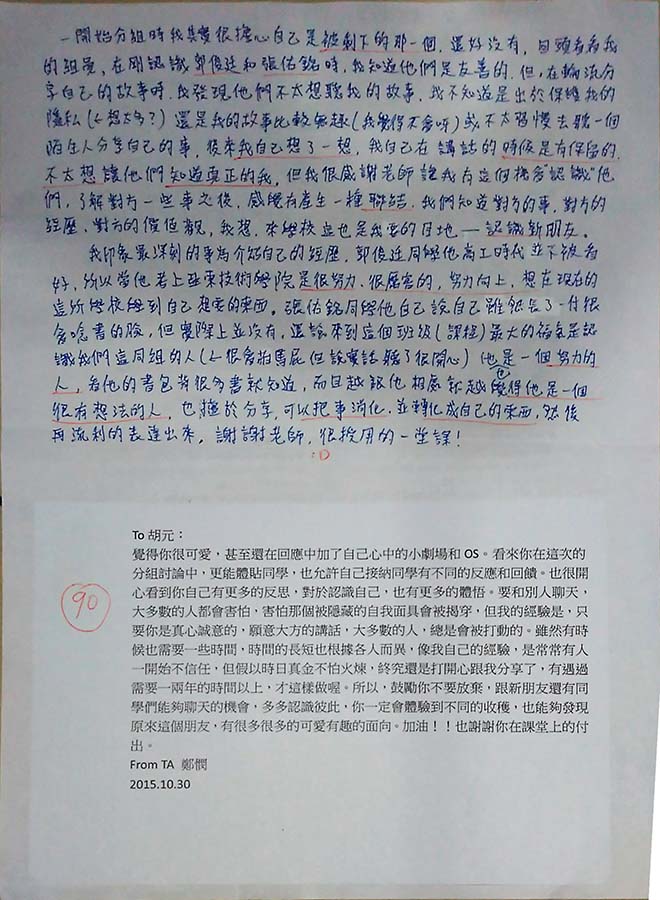 一開始分組時我其實很擔心自己是被剩下的那一個,還好沒有,回頭看看我
的組員,在剛認識郭俊廷和張佑銘時,我知道他們是友善的,但,在輪流分
享自己的故事時,我發現他們不太想聽我的故事,我不知道是出於保護我的
隱私(←想太多?)還是我的故事比較無趣(我覺得不會呀)或不太習慣去聽一個
陌生人分享自己的事,後來我自己想了一想,我自己在講話的時候是有保留的,
不太想讓他們知道真正的我,但我很感謝老師讓我有這個機會"認識"他
們,了解對方一些事之後,感覺有產生一種聯結,我們知道對方的事,對方的
經歷、對方的價值觀,我想,來學校這也是我要的目地——認識新朋友。
我印象最深刻的事為介紹自己的經歷,郭俊廷同學他高工時代並不被看
好,所以當他考上亞東技術學院是很努力、很厲害的,努力向上,想在現在的
這所學校學到自己想要的東西。張佑銘同學他自己說自己雖然長了一付很
會唸書的臉,但實際上並沒有,還說來到這個班級(課程)最大的福氣是認
識我們這同組的人(←很會拍馬屁但說實話聽了很開心)他也是一個努力的
人,看他的書包背很多書就知道,而且越跟他相處就越覺得他是一個
很有想法的人,也擅於分享,可以把事消化,並轉化成自己的東西,然後
再流利的表達出來。謝謝老師,很授用的一堂課!
:D
90
To 胡元:
覺得你很可愛,甚至還在回應中加了自己心中的小劇場和 OS。看來你在這次的
分組討論中,更能體貼同學,也允許自己接納同學有不同的反應和回饋。也很開
心看到你自己有更多的反思,對於認識自己,也有更多的體悟。要和別人聊天,
大多數的人都會害怕,害怕那個被隱藏的自我面具會被揭穿,但我的經驗是,只
要你是真心誠意的,願意大方的講話,大多數的人,總是會被打動的。雖然有時
候也需要一些時間,時間的長短也根據各人而異,像我自己的經驗,是常常有人
一開始不信任,但假以時日真金不怕火煉,終究還是打開心跟我分享了,有遇過
需要一兩年的時間以上,才這樣做喔。所以,鼓勵你不要放棄,跟新朋友還有同
學們能夠聊天的機會,多多認識彼此,你一定會體驗到不同的收穫,也能夠發現
原來這個朋友,有很多很多的可愛有趣的面向。加油!!也謝謝你在課堂上的付
出。
From TA 鄭憫
2015.10.30